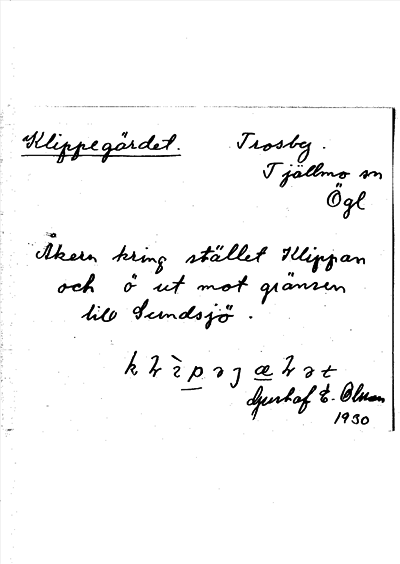 Klippegärdet. Trosby.
Tjällmo sn
Ögl
Åkern kring stället Klippan
och ö ut mot gränsen
till Sundsjö.
E. Olsson
1930